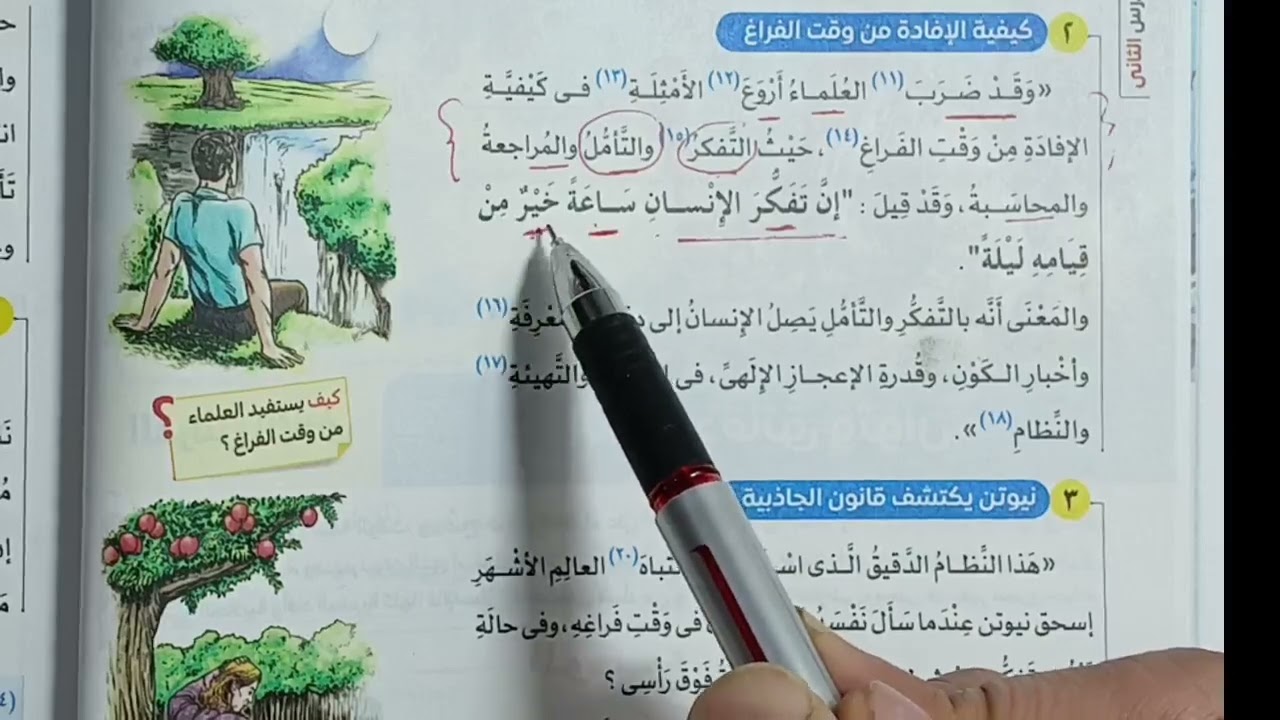 رس الثانى
٢ كيفية الإفادة من وقت الفراغ
«وَقَـدْ ضَـرَبَ (١١) العُلَمـاءُ أَرْوَعَ (١٢) الأَمْثِلَـةِ (١٣) فـى كَيْفيَّـةِ
الإفادَةِ مِنْ وَقْتِ الفَـراغِ (١٤)، حَيْثُ التَّفَكرُ (١٥) والتَّأَمُّلُ والمُراجعةُ
والمحاسَـبةُ، وَقَدْ قِيلَ : "إنَّ تَفَكُّرَ الإنْسـانِ سَـاعَةً خَيْرٌ مِنْ
قِيَامِهِ لَيْلَةً".
والمَعْنَى أَنَّه بالتَّفَكُّرِ والتَّأَمُّلِ يَصِلُ الإنسانُ إلى (١٦)
وأخْبارِ الكَوْنِ، وقُدرةِ الإعجازِ الإلَهىِّ، فى والتَّهيئةِ (١٧)
والنِّظامِ (١٨)».
كيف يستفيد العلماء
من وقت الفراغ ؟
؟
٣ نيوتن يكتشف قانون الجاذبية
«هَذا النِّظامُ الدَّقيقُ الَّذى (٢٠) العالِمِ الأشْهَرِ
إسحق نيوتن عِنْدَما سَأَلَ نَفْسَهُ فى وَقْتِ فَراغِهِ، وفى حالَةِ
فَوْقَ رَأْسِى ؟